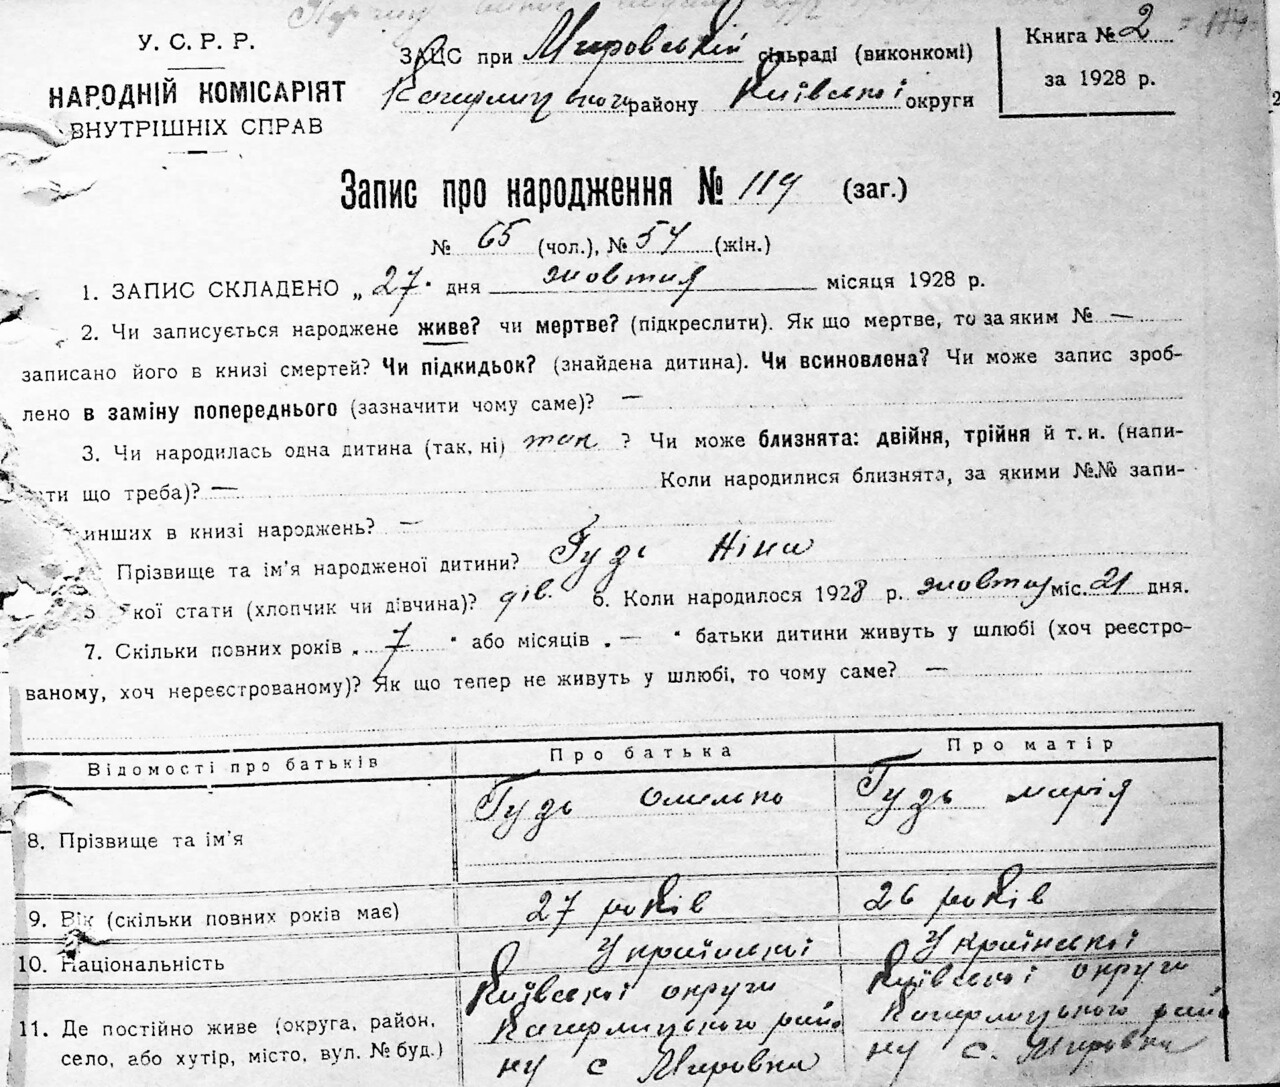 У. С. Р. Р.
НАРОДНІЙ КОМІСАРІЯТ
ВНУТРІШНІХ СПРАВ
ЗАЦС при Мировській сільраді (виконкомі)
Кагарлицького району Київської округи
Книга № 2
за 1928 р.
Запис про народження № 119 (заг.)
№ 65 (чол.), № 54 (жін.)
1. ЗАПИС СКЛАДЕНО „27" дня жовтня місяця 1928 р.
2. Чи записується народжене живе? чи мертве? (підкреслити). Як що мертве, то за яким № —
записано його в книзі смертей? Чи підкидьок? (знайдена дитина). Чи всиновлена? Чи може запис зроб-
лено в заміну попереднього (зазначити чому саме)? —
3. Чи народилась одна дитина (так, ні) так ? Чи може близнята: двійня, трійня й т. и. (напи-
ати що треба)? — Коли народилися близнята, за якими №№ запи-
инших в книзі народжень? —
Прізвище та ім'я народженої дитини? Гудь Ніна
5 кої стати (хлопчик чи дівчина)? дів. 6. Коли народилося 1928 р. жовтня міс. 21 дня.
7. Скільки повних років „ 7 " або місяців „ — " батьки дитини живуть у шлюбі (хоч реєстро-
ваному, хоч нереєстрованому)? Як що тепер не живуть у шлюбі, то чому саме? —
Відомості про батьків
Про батька
Про матір
8. Прізвище та ім'я
Гудь Омелько
Гудь Марія
9. Вік (скільки повних років має)
27 років
26 років
10. Національність
Української
Української
11. Де постійно живе (округа, район,
село, або хутір, місто, вул. № буд.)
Київської округи
Кагарлицького райо
ну с Мировка
Київської округи
Кагарлицького райо
ну с. Мировка